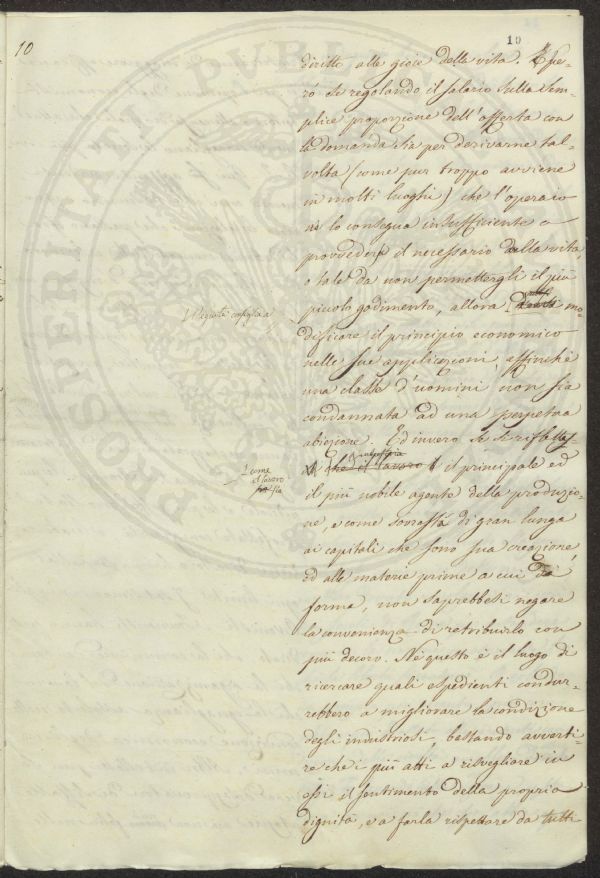 10
10
diritto alle gioie della vita. E pe-
rò se regolando il salario sulla sem-
plice proporzione dell'offerta con
la domanda sta per derivarne tal-
volta (come pur troppo avviene
in molti luoghi) che l'operaio
lo consegua insufficiente a
provvedere il necessario alla vita,
o tale da non permettergli il più
piccolo godimento, allora
l'equità consiglia a
mo-
dificare il principio economico
nelle sue applicazioni, affinchè
una classe d'uomini non sia
condannata ad una perpetua
abiezione. Ed invero se si riflettes-
che il lavoro
come
il lavoro
sia
il principale ed
il più nobile agente della produzio-
ne, e come sorrassa di gran lunga
ai capitali che sono sua creazione,
ed alle materie prime a cui dà
forma, non saprebbesi negare
la convenienza di retribuirlo con
più decoro. Nè questo è il luogo di
ricercare quali espedienti condur-
rebbero a migliorare la condizione
degli industriosi, bastando avverti-
re che i più atti a risvegliare in
essi il sentimento della propria
dignità, e a farla rispettare da tutti
PROSPERITATI PVBLICAE